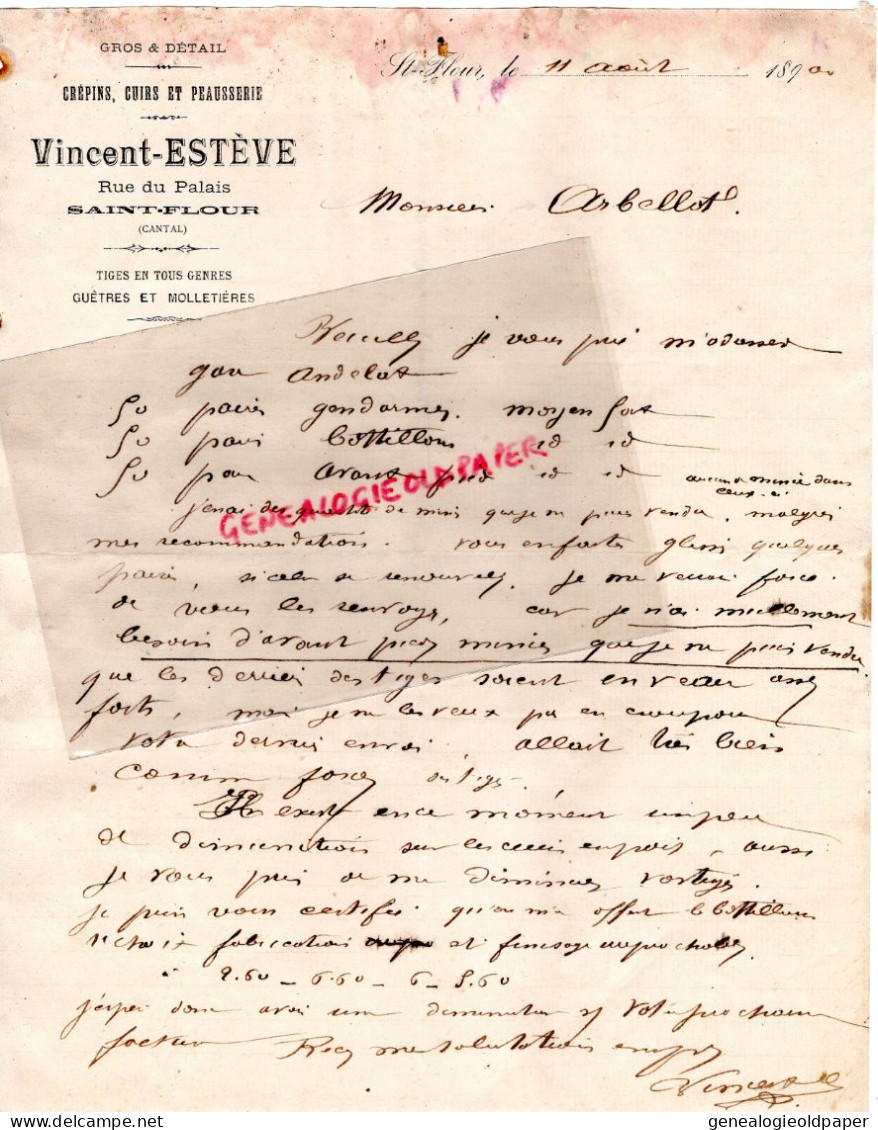 GROS & DÉTAIL
CRÉPINS, CUIRS ET PEAUSSERIE
Vincent-ESTÈVE
Rue du Palais
SAINT-FLOUR
(CANTAL)
TIGES EN TOUS GENRES
GUÊTRES ET MOLLETIÈRES
St-Flour, le 11 août 1890
Monsieur Arbellot.
je vous prie m'adresser
gare Andelat
50 paires gendarmes moyen fort
50 paires bottillons id id
50 paires avant pied id id
aucun minie dans
ceux-ci
j'en ai des quantité de minis que je ne puis vendre, malgré
mes recommandations. vous en faites glissé quelques
paires, si cela se renouvelle, je me verrai forcé
de vous les renvoyé, car je n'ai nullement
besoin d'avant pied minies que je ne puis vendre.
que les derrier des tiges soient en veau assez
forts, mais je ne les veux pas en croupon
votre dernier envoi, allait très bien
comme force des tiges.
en ce moment un peu
de diminution sur les cuirs en poil, aussi
je vous prie de me diminuer vos tiges.
je puis vous certifié qu'on m'a offert le bottillon
1er choix fabrication et finissage irréprochables
à 7.60 - 6.60 - 6 - 5.60
j'espère donc avoir une diminution sur votre prochaine
facture Recevez mes salutations
Vincent
GENEALOGIEOLDPAPER
genealogieoldpaper